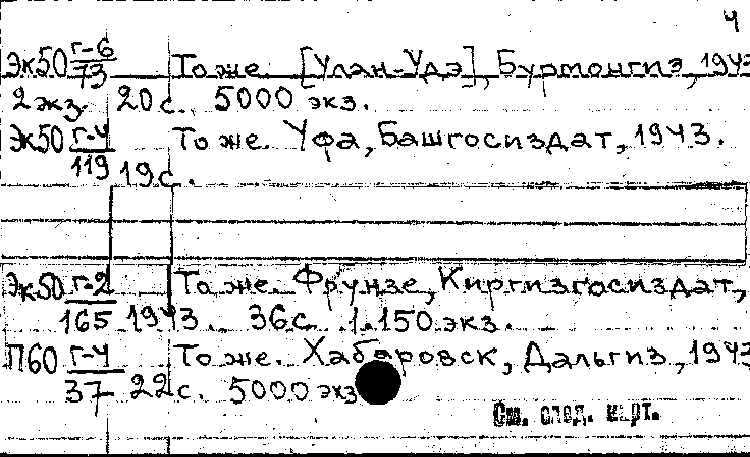 4
Эк50 Г-6/73 То же. [Улан-Удэ], Бурмонгиз, 1943
2 экз. 20 с. 5000 экз.
Эк50 Г-4/119 То же. Уфа, Башгосиздат, 1943.
19 с.
Эк50 Г-2/165 То же. Фрунзе, Киргизгосиздат,
1943. 36 с. 1.150 экз.
П60 Г-4/37 То же. Хабаровск, Дальгиз, 1943
22 с. 5000 экз
См. след. карт.